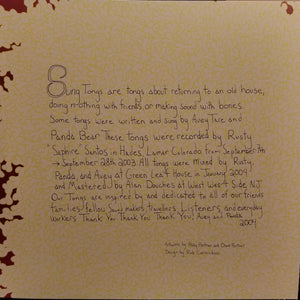 Sung Tongs are tongs about returning to an old house,
doing nothing with friends or making sound with bones.
Some tongs were written and sung by Avey Tare and
Panda Bear. These tongs were recorded by Rusty
Santos in Hades, Lamar Colorado from September 7th
→ September 28th 2003. All tongs were mixed by Rusty,
Panda and Avey at Green Leaf House in January 2004
and Mastered by Alan Douches at West West Side NJ.
Our Tongs are inspired by and dedicated to all of our friends
families fellow Sound makers travellers Listeners and everyday
workers Thank You Thank You Thank You! Avey and Panda
2004
Artwork by Abby Portner and Dave Portner
Design by Rob Carmichael